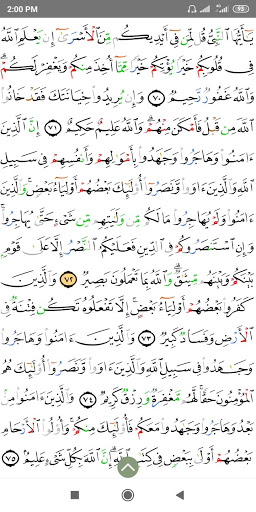 2:00 PM 95
يَـٰٓأَيُّهَا ٱلنَّبِىُّ قُل لِّمَن فِىٓ أَيْدِيكُم مِّنَ ٱلْأَسْرَىٰٓ إِن يَعْلَمِ ٱللَّهُ
فِى قُلُوبِكُمْ خَيْرًا يُؤْتِكُمْ خَيْرًا مِّمَّآ أُخِذَ مِنكُمْ وَيَغْفِرْ لَكُمْ ۗ
وَٱللَّهُ غَفُورٌ رَّحِيمٌ ٧٠ وَإِن يُرِيدُوا۟ خِيَانَتَكَ فَقَدْ خَانُوا۟
ٱللَّهَ مِن قَبْلُ فَأَمْكَنَ مِنْهُمْ ۗ وَٱللَّهُ عَلِيمٌ حَكِيمٌ ٧١ إِنَّ ٱلَّذِينَ
ءَامَنُوا۟ وَهَاجَرُوا۟ وَجَـٰهَدُوا۟ بِأَمْوَٰلِهِمْ وَأَنفُسِهِمْ فِى سَبِيلِ
ٱللَّهِ وَٱلَّذِينَ ءَاوَوا۟ وَّنَصَرُوٓا۟ أُو۟لَـٰٓئِكَ بَعْضُهُمْ أَوْلِيَآءُ بَعْضٍ ۚ وَٱلَّذِينَ
ءَامَنُوا۟ وَلَمْ يُهَاجِرُوا۟ مَا لَكُم مِّن وَلَـٰيَتِهِم مِّن شَىْءٍ حَتَّىٰ يُهَاجِرُوا۟ ۚ
وَإِنِ ٱسْتَنصَرُوكُمْ فِى ٱلدِّينِ فَعَلَيْكُمُ ٱلنَّصْرُ إِلَّا عَلَىٰ قَوْمٍۭ
بَيْنَكُمْ وَبَيْنَهُم مِّيثَـٰقٌ ۗ وَٱللَّهُ بِمَا تَعْمَلُونَ بَصِيرٌ ٧٢ وَٱلَّذِينَ
كَفَرُوا۟ بَعْضُهُمْ أَوْلِيَآءُ بَعْضٍ ۚ إِلَّا تَفْعَلُوهُ تَكُن فِتْنَةٌ فِى
ٱلْأَرْضِ وَفَسَادٌ كَبِيرٌ ٧٣ وَٱلَّذِينَ ءَامَنُوا۟ وَهَاجَرُوا۟
وَجَـٰهَدُوا۟ فِى سَبِيلِ ٱللَّهِ وَٱلَّذِينَ ءَاوَوا۟ وَّنَصَرُوٓا۟ أُو۟لَـٰٓئِكَ هُمُ
ٱلْمُؤْمِنُونَ حَقًّا ۚ لَّهُم مَّغْفِرَةٌ وَرِزْقٌ كَرِيمٌ ٧٤ وَٱلَّذِينَ ءَامَنُوا۟ مِنۢ
بَعْدُ وَهَاجَرُوا۟ وَجَـٰهَدُوا۟ مَعَكُمْ فَأُو۟لَـٰٓئِكَ مِنكُمْ ۚ وَأُو۟لُوا۟ ٱلْأَرْحَامِ
بَعْضُهُمْ أَوْلَىٰ بِبَعْضٍ فِى كِتَـٰبِ ٱللَّهِ ۗ إِنَّ ٱللَّهَ بِكُلِّ شَىْءٍ عَلِيمٌۢ ٧٥